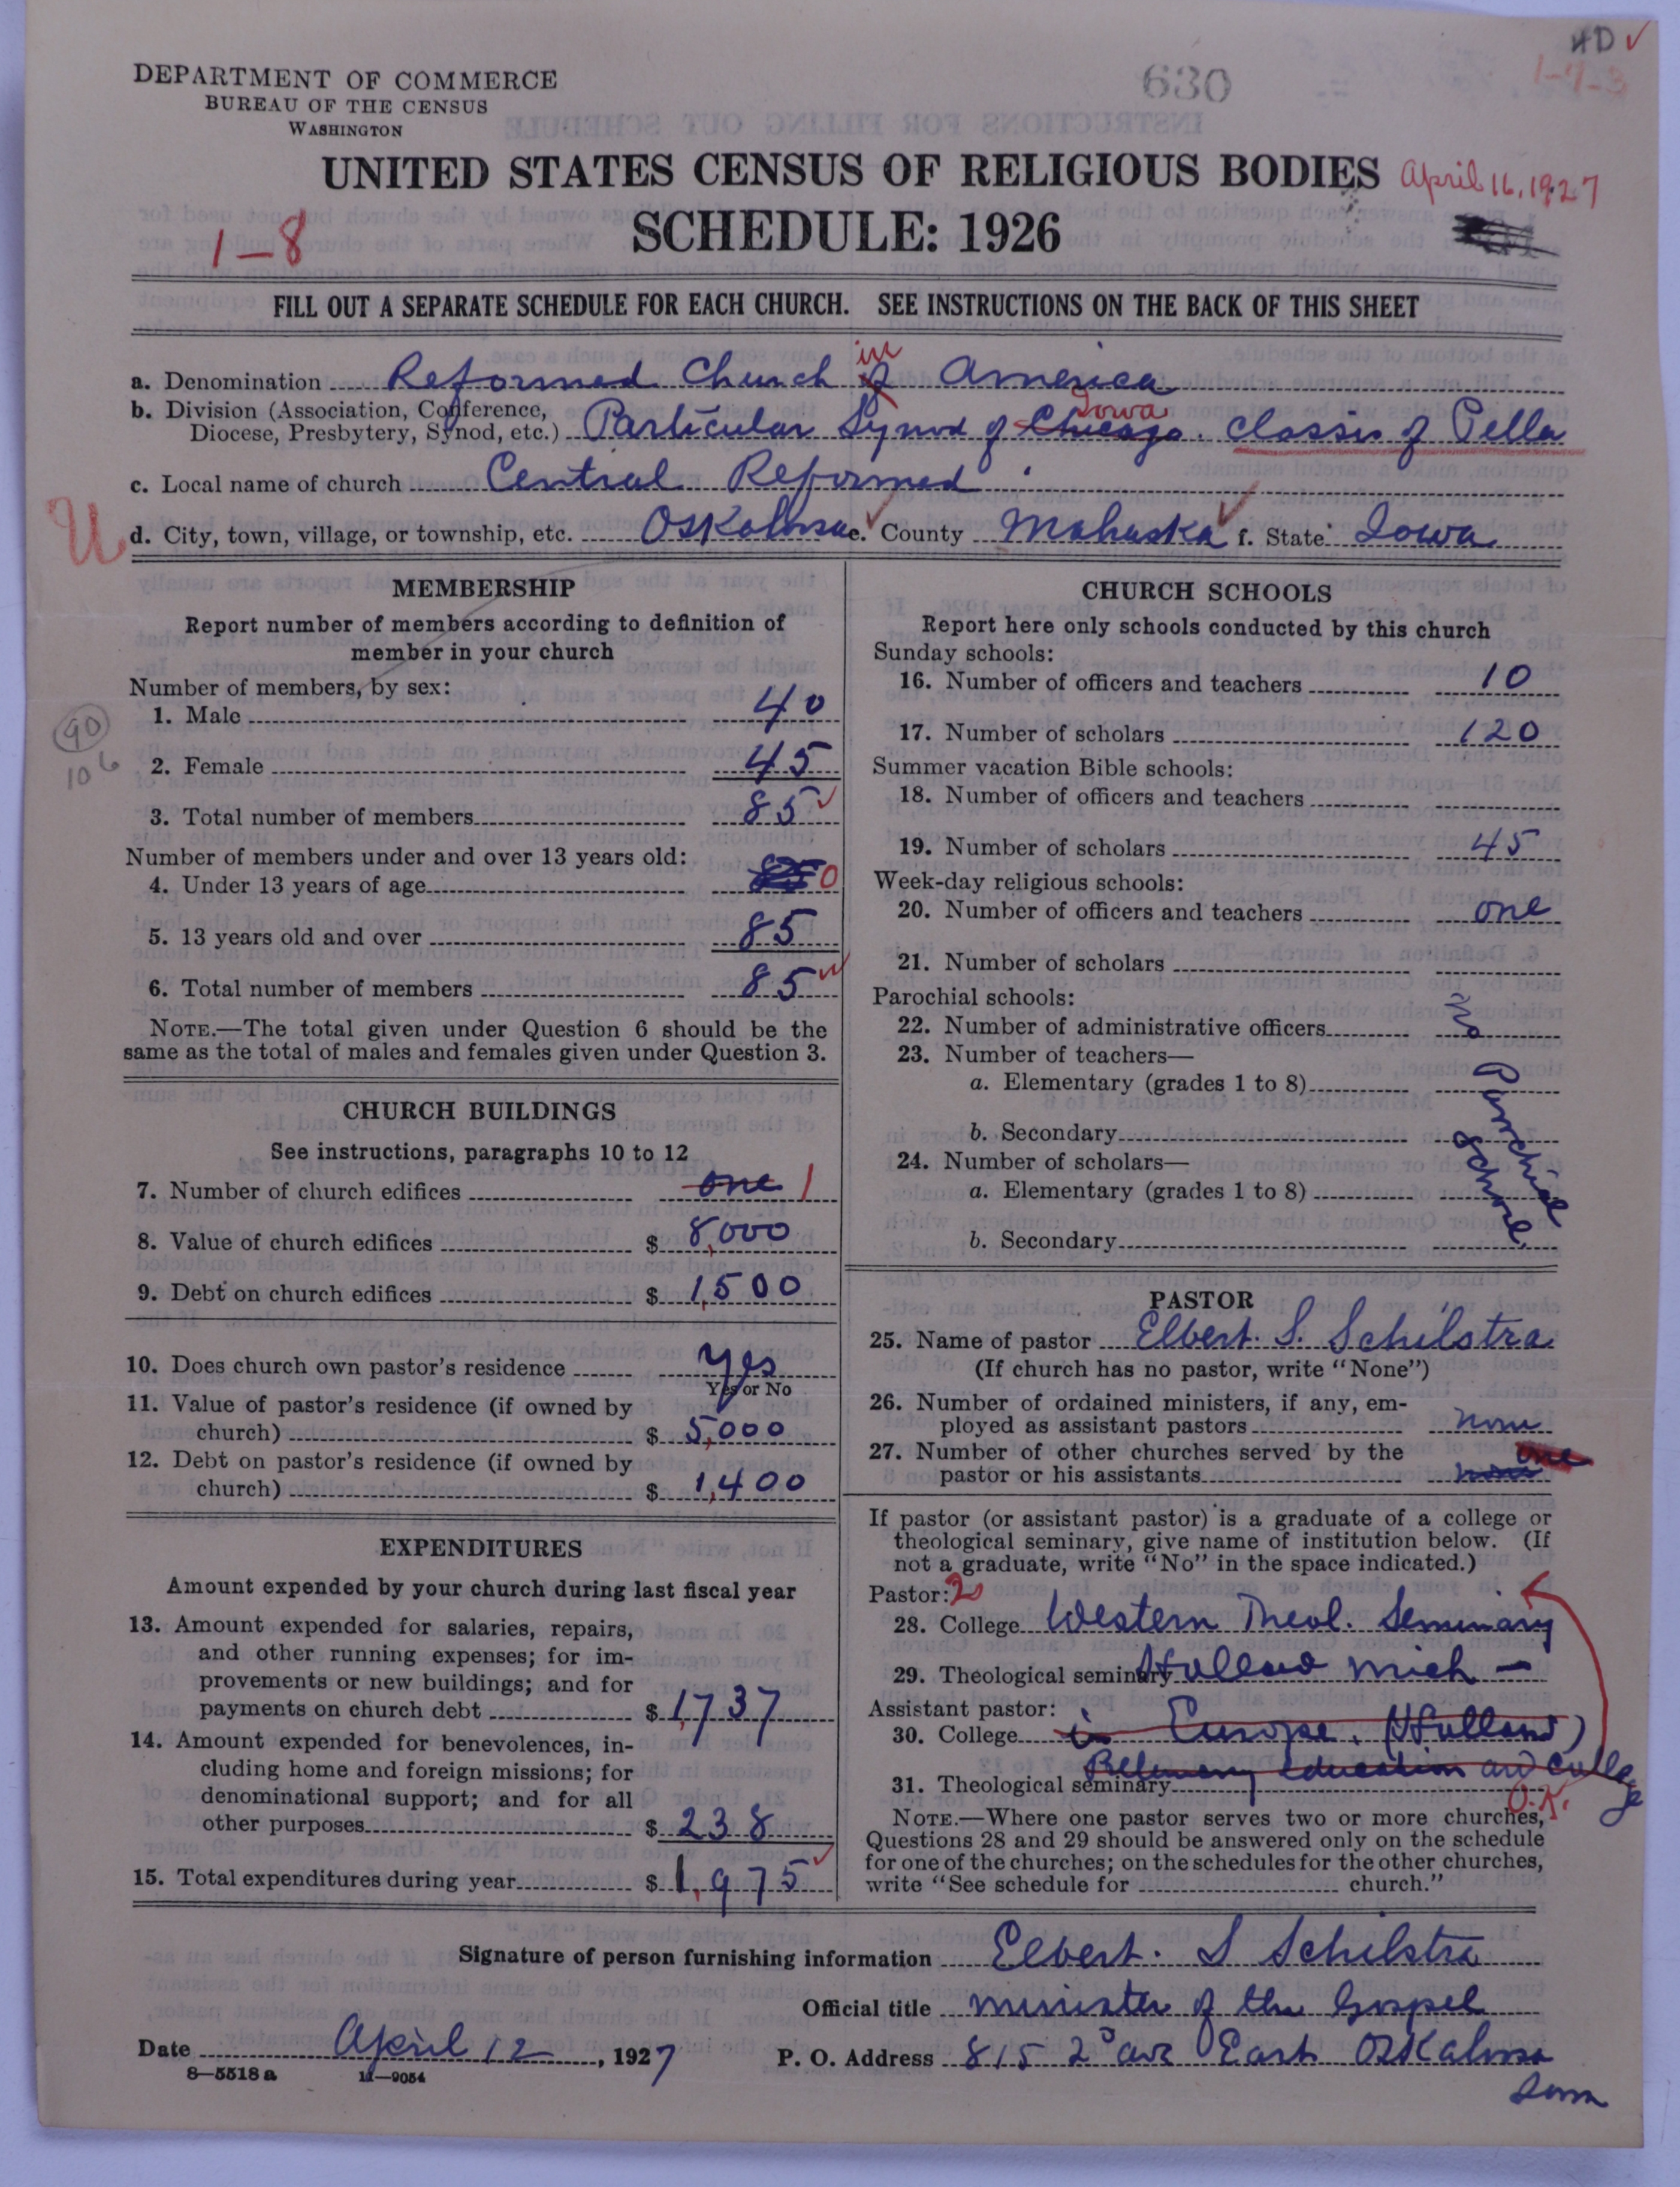 HD ✓
1-7-3
630
DEPARTMENT OF COMMERCE
BUREAU OF THE CENSUS
WASHINGTON
UNITED STATES CENSUS OF RELIGIOUS BODIES
April 16, 1927
SCHEDULE: 1926
1-8
FILL OUT A SEPARATE SCHEDULE FOR EACH CHURCH. SEE INSTRUCTIONS ON THE BACK OF THIS SHEET
a. Denomination Reformed Church in America
b. Division (Association, Conference,
Diocese, Presbytery, Synod, etc.) Particular Synod of Chicago Iowa. Classis of Pella
c. Local name of church Central Reformed
U
d. City, town, village, or township, etc. Oskaloosa e. County Mahaska f. State Iowa
MEMBERSHIP
Report number of members according to definition of
member in your church
Number of members, by sex:
1. Male 40
90
106
2. Female 45
3. Total number of members 85 ✓
Number of members under and over 13 years old:
4. Under 13 years of age 0
5. 13 years old and over 85
6. Total number of members 85 ✓
NOTE.—The total given under Question 6 should be the
same as the total of males and females given under Question 3.
CHURCH BUILDINGS
See instructions, paragraphs 10 to 12
7. Number of church edifices one 1
8. Value of church edifices $ 8,000
9. Debt on church edifices $ 1,500
10. Does church own pastor's residence yes
Yes or No
11. Value of pastor's residence (if owned by
church) $ 5,000
12. Debt on pastor's residence (if owned by
church) $ 1,400
EXPENDITURES
Amount expended by your church during last fiscal year
13. Amount expended for salaries, repairs,
and other running expenses; for im-
provements or new buildings; and for
payments on church debt $ 1,737
14. Amount expended for benevolences, in-
cluding home and foreign missions; for
denominational support; and for all
other purposes $ 238
15. Total expenditures during year $ 1,975 ✓
CHURCH SCHOOLS
Report here only schools conducted by this church
Sunday schools:
16. Number of officers and teachers 10
17. Number of scholars 120
Summer vacation Bible schools:
18. Number of officers and teachers
19. Number of scholars 45
Week-day religious schools:
20. Number of officers and teachers one
21. Number of scholars
Parochial schools:
22. Number of administrative officers No
23. Number of teachers—
a. Elementary (grades 1 to 8) Parochial
b. Secondary
24. Number of scholars—
a. Elementary (grades 1 to 8)
b. Secondary
PASTOR
25. Name of pastor Elbert. S. Schilstra
(If church has no pastor, write "None")
26. Number of ordained ministers, if any, em-
ployed as assistant pastors none
27. Number of other churches served by the
pastor or his assistants none one
If pastor (or assistant pastor) is a graduate of a college or
theological seminary, give name of institution below. (If
not a graduate, write "No" in the space indicated.)
Pastor: 2
28. College Western Theol. Seminary
29. Theological seminary Holland Mich —
Assistant pastor:
30. College in Europe. (Holland)
31. Theological seminary education and College
O.K.
NOTE.—Where one pastor serves two or more churches,
Questions 28 and 29 should be answered only on the schedule
for one of the churches; on the schedules for the other churches,
write "See schedule for church."
Signature of person furnishing information Elbert. S Schilstra
Official title minister of the Gospel
Date April 12, 1927 P. O. Address 815 2d ave East Oskaloosa
Iowa
8—5518 a 11—9054